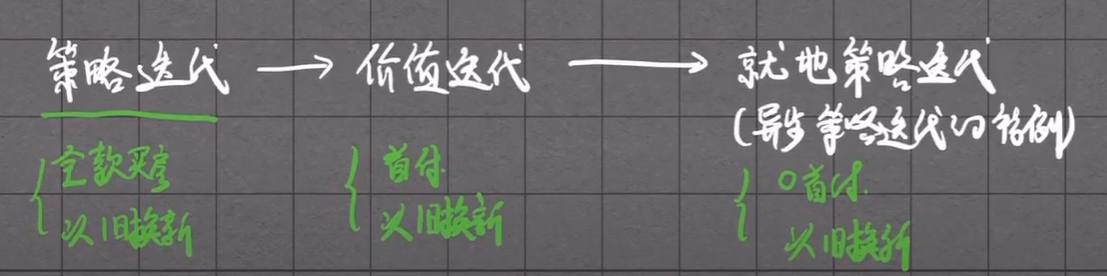 策略迭代 → 价值迭代 → 就地策略迭代
(异步策略迭代的特例)
全款买房 首付 0首付
以旧换新 以旧换新 以旧换新